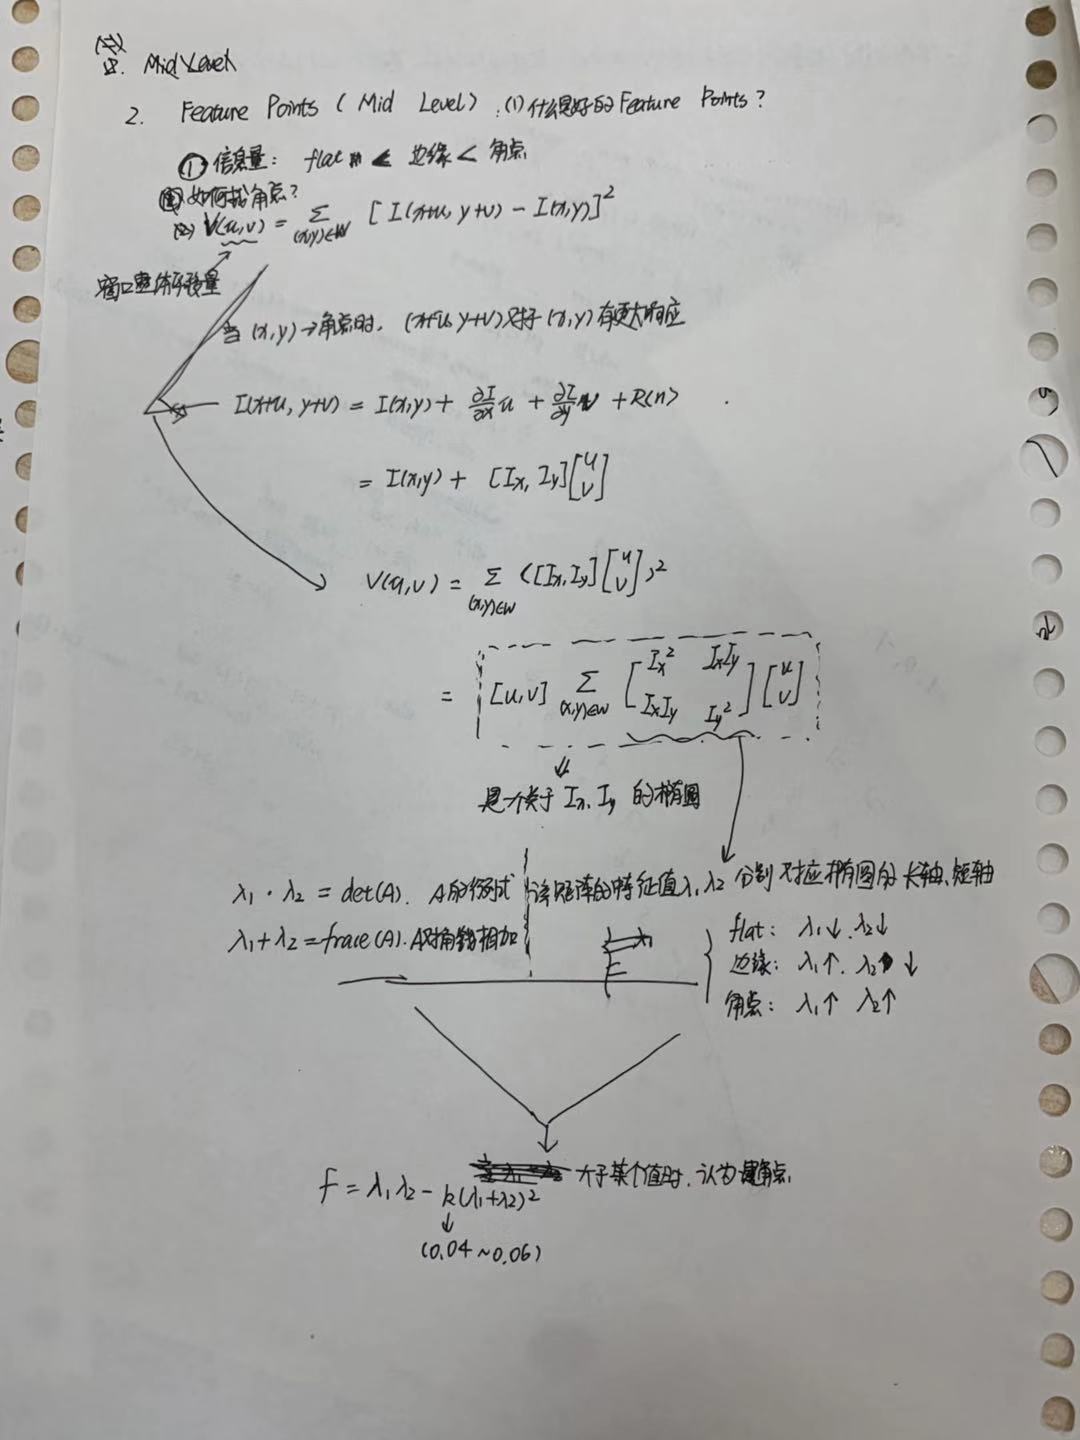 8. Mid Level
2. Feature Points ( Mid Level ) . (1) 什么是好的 Feature Points ?
① 信息量: flat < 边缘 < 角点
如何找角点?
(2) V(u,v) = Σ(x,y)∈W [ I(x+u, y+v) - I(x,y) ]²
窗口整体平移量
当 (x,y) → 角点时, (x+u, y+v) 对于 (x,y) 有更大响应
I(x+u, y+v) = I(x,y) + ∂I/∂x u + ∂I/∂y v + R(n)
= I(x,y) + [Ix, Iy] [u v]
V(u,v) = Σ(x,y)∈W ([Ix, Iy] [u v])²
= [u,v] Σ(x,y)∈W [Ix² IxIy IxIy Iy²] [u v]
是个关于 Ix, Iy 的椭圆
λ1 · λ2 = det(A). A的行列式
λ1 + λ2 = trace(A). A对角线相加
该矩阵的特征值 λ1, λ2 分别对应椭圆的长轴、短轴
flat: λ1↓. λ2↓
边缘: λ1↑. λ2↓
角点: λ1↑ λ2↑
f = λ1 λ2 - k(λ1+λ2)² 大于某个值时, 认为是角点.
(0.04 ~ 0.06)